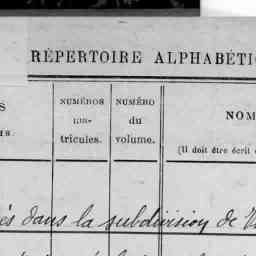 RÉPERTOIRE ALPHABÉTI
S
NUMÉROS
ma-
tricules.
NUMÉRO
du
volume.
NOM
(Il doit être écrit
és dans la subdivision de V